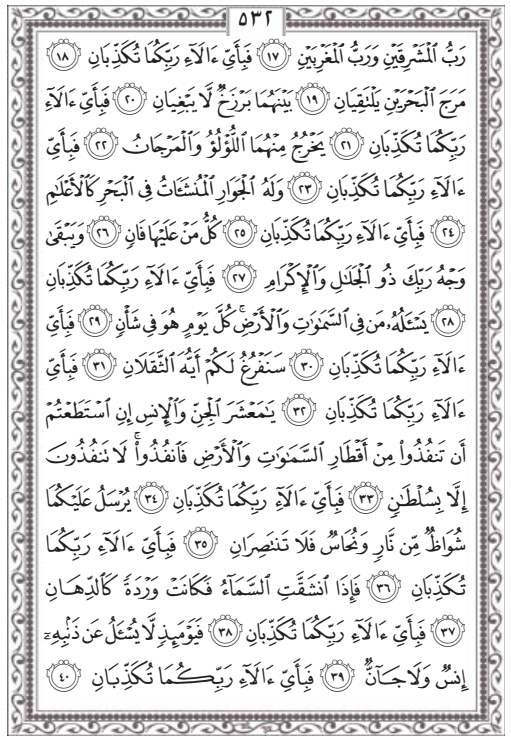 ٥٣٢
رَبُّ ٱلْمَشْرِقَيْنِ وَرَبُّ ٱلْمَغْرِبَيْنِ ١٧ فَبِأَىِّ ءَالَآءِ رَبِّكُمَا تُكَذِّبَانِ ١٨
مَرَجَ ٱلْبَحْرَيْنِ يَلْتَقِيَانِ ١٩ بَيْنَهُمَا بَرْزَخٌ لَّا يَبْغِيَانِ ٢٠ فَبِأَىِّ ءَالَآءِ
رَبِّكُمَا تُكَذِّبَانِ ٢١ يَخْرُجُ مِنْهُمَا ٱللُّؤْلُؤُ وَٱلْمَرْجَانُ ٢٢ فَبِأَىِّ
ءَالَآءِ رَبِّكُمَا تُكَذِّبَانِ ٢٣ وَلَهُ ٱلْجَوَارِ ٱلْمُنشَـَٔاتُ فِى ٱلْبَحْرِ كَٱلْأَعْلَـٰمِ
٢٤ فَبِأَىِّ ءَالَآءِ رَبِّكُمَا تُكَذِّبَانِ ٢٥ كُلُّ مَنْ عَلَيْهَا فَانٍ ٢٦ وَيَبْقَىٰ
وَجْهُ رَبِّكَ ذُو ٱلْجَلَـٰلِ وَٱلْإِكْرَامِ ٢٧ فَبِأَىِّ ءَالَآءِ رَبِّكُمَا تُكَذِّبَانِ
٢٨ يَسْـَٔلُهُۥ مَن فِى ٱلسَّمَـٰوَٰتِ وَٱلْأَرْضِ ۚ كُلَّ يَوْمٍ هُوَ فِى شَأْنٍ ٢٩ فَبِأَىِّ
ءَالَآءِ رَبِّكُمَا تُكَذِّبَانِ ٣٠ سَنَفْرُغُ لَكُمْ أَيُّهَ ٱلثَّقَلَانِ ٣١ فَبِأَىِّ
ءَالَآءِ رَبِّكُمَا تُكَذِّبَانِ ٣٢ يَـٰمَعْشَرَ ٱلْجِنِّ وَٱلْإِنسِ إِنِ ٱسْتَطَعْتُمْ
أَن تَنفُذُوا۟ مِنْ أَقْطَارِ ٱلسَّمَـٰوَٰتِ وَٱلْأَرْضِ فَٱنفُذُوا۟ ۚ لَا تَنفُذُونَ
إِلَّا بِسُلْطَـٰنٍ ٣٣ فَبِأَىِّ ءَالَآءِ رَبِّكُمَا تُكَذِّبَانِ ٣٤ يُرْسَلُ عَلَيْكُمَا
شُوَاظٌ مِّن نَّارٍ وَنُحَاسٌ فَلَا تَنتَصِرَانِ ٣٥ فَبِأَىِّ ءَالَآءِ رَبِّكُمَا
تُكَذِّبَانِ ٣٦ فَإِذَا ٱنشَقَّتِ ٱلسَّمَآءُ فَكَانَتْ وَرْدَةً كَٱلدِّهَانِ
٣٧ فَبِأَىِّ ءَالَآءِ رَبِّكُمَا تُكَذِّبَانِ ٣٨ فَيَوْمَئِذٍ لَّا يُسْـَٔلُ عَن ذَنۢبِهِۦٓ
إِنسٌ وَلَا جَآنٌّ ٣٩ فَبِأَىِّ ءَالَآءِ رَبِّكُمَا تُكَذِّبَانِ ٤٠